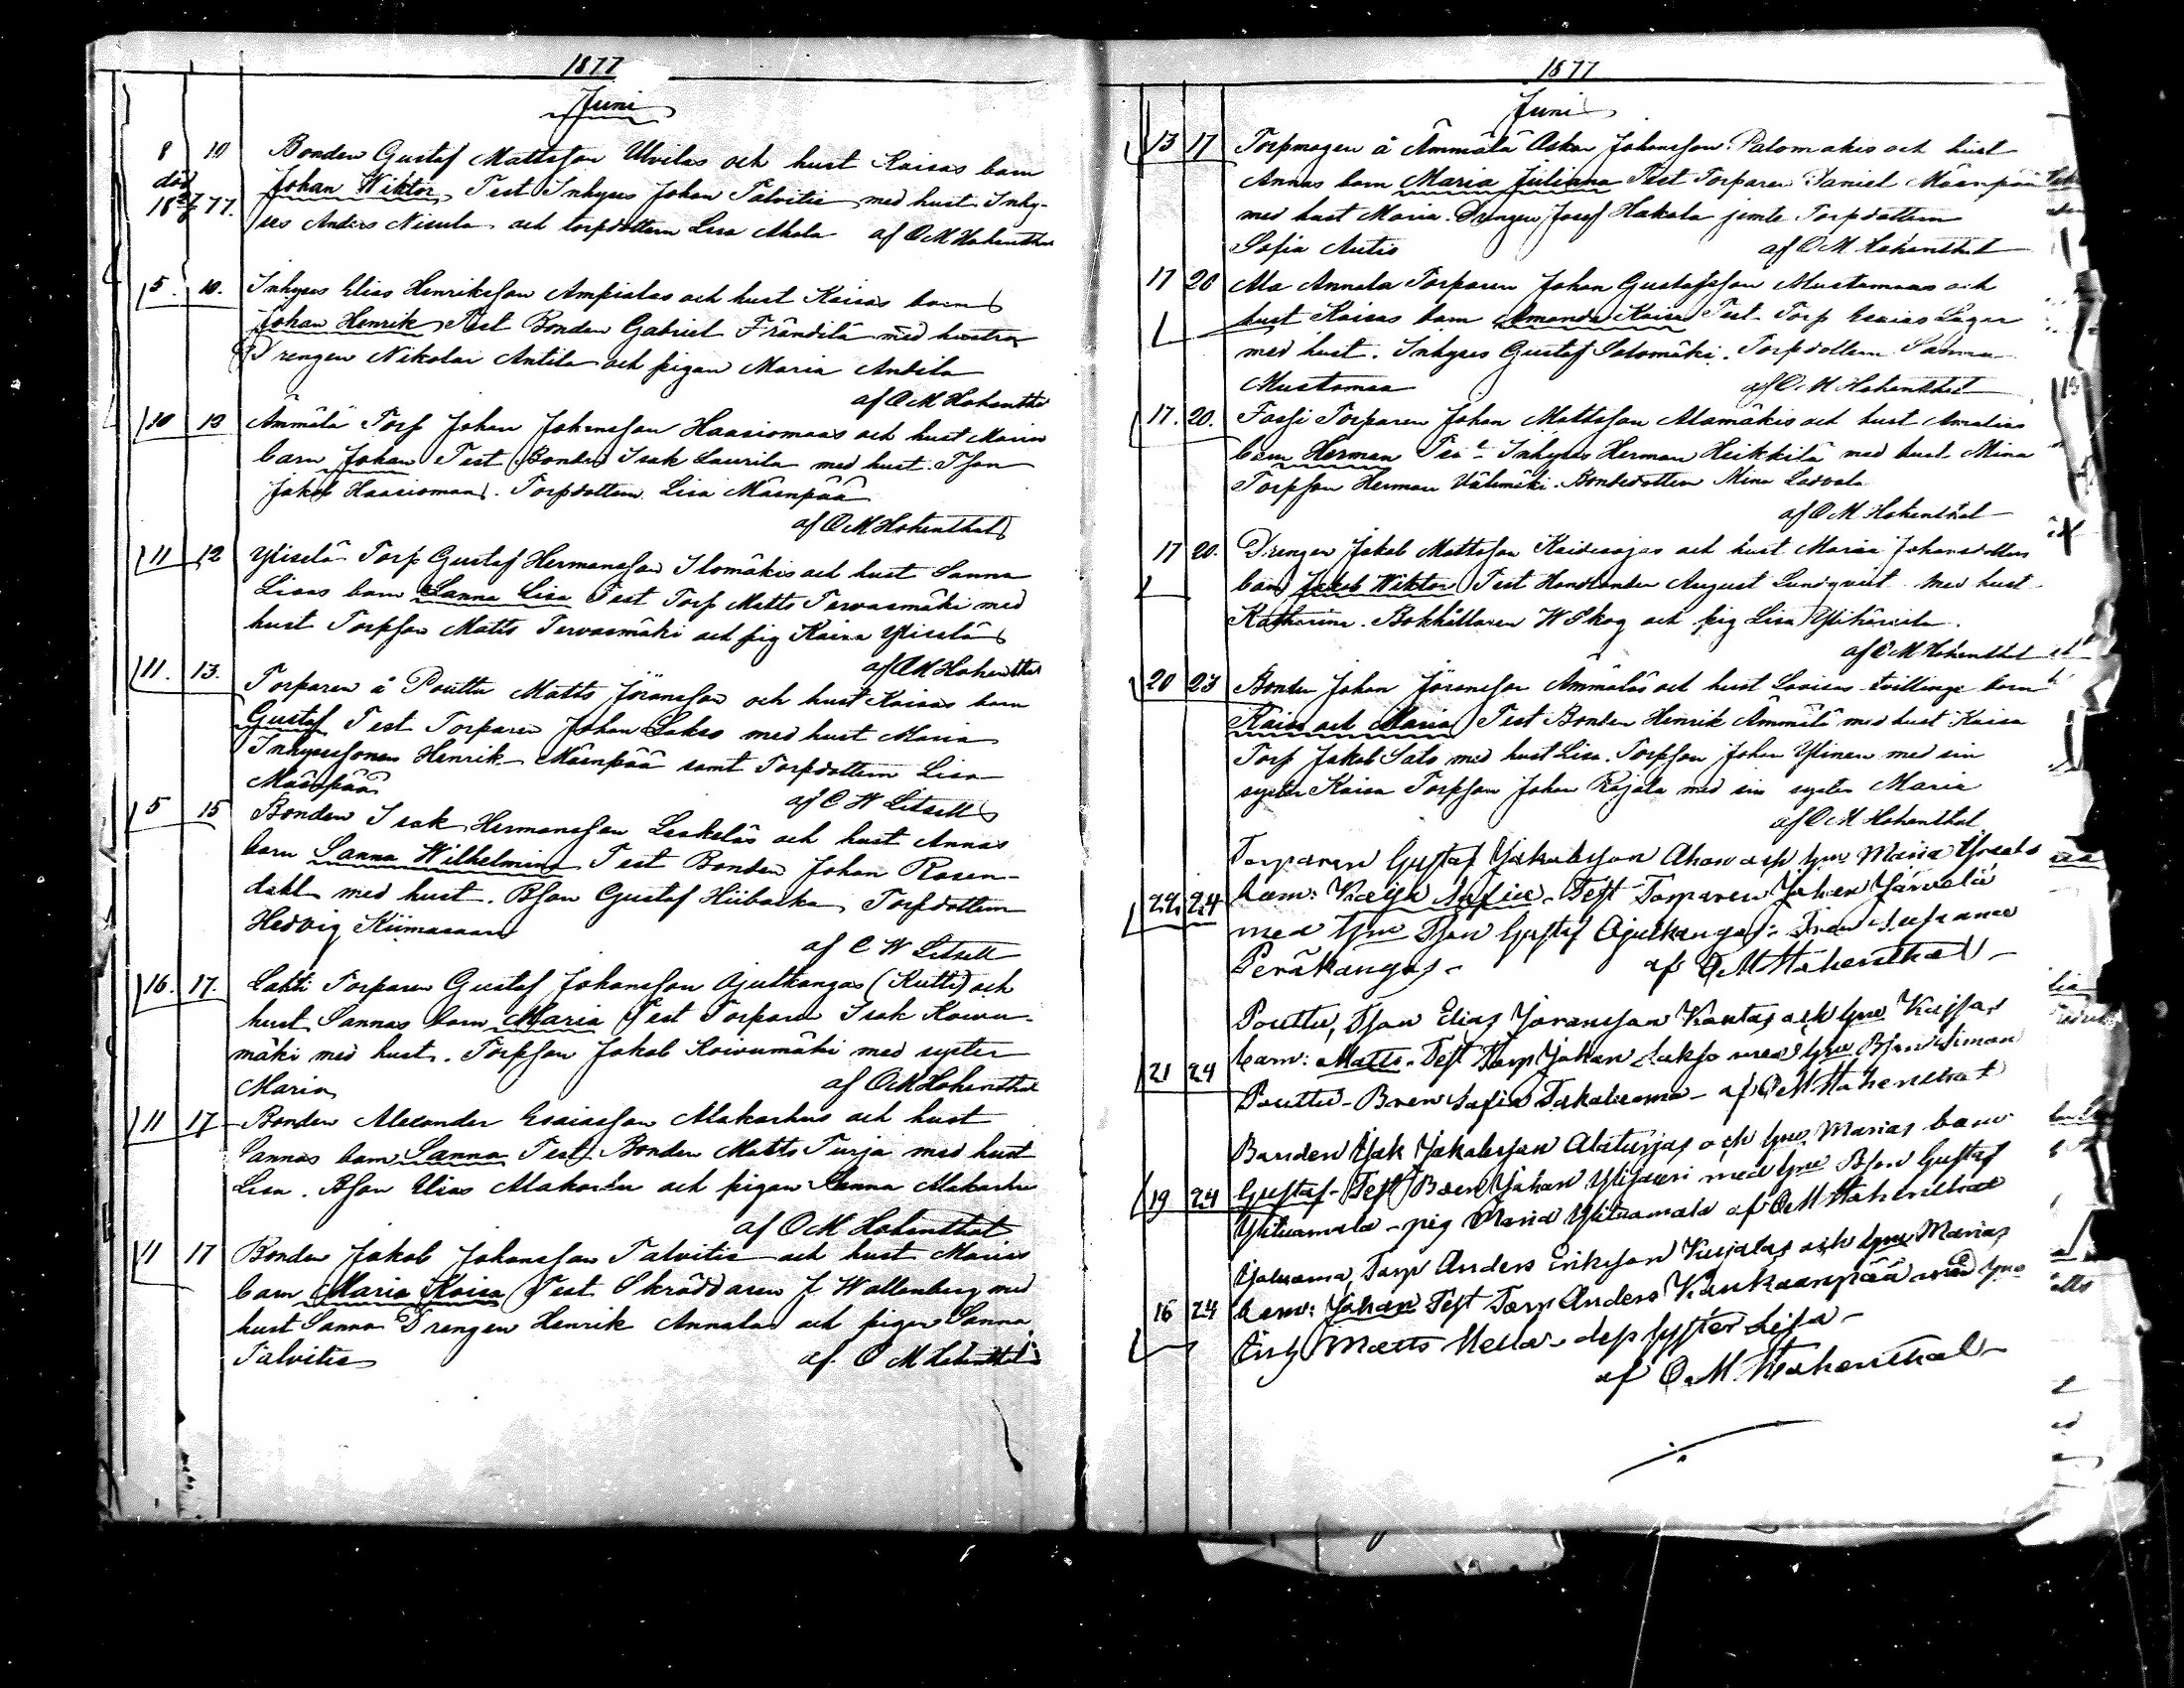 1877
Juni
8 10 Bonden Gustaf Mattsson Ulvilas och hust Kaisas barn
död Johan Wiktor, Test Inhyses Johan Talvitie med hust. Inhy-
18 77. ses Anders Nisula och torpdottern Lisa Ahola af O M Hohenthal
5. 10. Inhyses Elias Henriksson Ampialas och hust Kaisas barn
Johan Henrik Test Bonden Gabriel Frändilä med hustru
Drengen Nikolai Antila och pigan Maria Antila
af O M Hohenthal
10 12 Ämmälä Torp Johan Johansson Haasiomaas och hust Marias
barn Johan Test Bonden Isak Laurila med hust. Tson
Jakob Haasiomaa. Torpdottern Lisa Mäenpää
af O M Hohenthal
11 12 Yliselä Torp Gustaf Hermansson Ilomäkis och hust Sanna
Lisas barn Sanna Lisa Test Torp Matts Tervasmäki med
hust Torpson Matts Tervasmäki och pig Kaisa Yliselä
af O M Hohenthal
11. 13. Torparen å Pouttu Matts Jöransson och hust Kaisas barn
Gustaf Test Torparen Johan Lakso med hust Maria
Inhysessonen Henrik Mäenpää samt Torpdottern Lisa
Mäenpää
af C W Litzell
5 15 Bonden Isak Hermansson Leskeläs och hust Annas
barn Sanna Wilhelmina Test Bonden Johan Rosen-
dahl med hust. Bson Gustaf Hiibacka, Torpdottern
Hedvig Kiimamaa
af C W Litzell
16. 17. Lahti Torparen Gustaf Johansson Ojutkangas (Kutti) och
hust Sannas barn Maria Test Torparen Isak Koivu-
mäki med hust. Torpson Jakob Koivumäki med syster
Maria af O M Hohenthal
11 17 Bonden Alexander Esaiasson Alakarhus och hust
Sannas barn Sanna Test Bonden Matts Turja med hust
Lisa. Bson Elias Alakarhu och pigan Sanna Alakarhu
af O M Hohenthal
11 17 Bonden Jakob Johansson Talvitie och hust Marias
barn Maria Kaisa Test Skräddaren J Wallenberg med
hust Sanna Drengen Henrik Annala och pigan Sanna
Talvitie af O M Hohenthal
1877
Juni
13 17 Torpmågen å Ämmälä Oskar Johansson Palomäkis och hust
Annas barn Maria Juliana Test Torparen Daniel Mäenpää
med hust Maria. Drengen Josef Hakola jemte Torpdottern
Sofia Autio af O M Hohenthal
17 20 Ala Annala Torparen Johan Gustafsson Mustamaas och
hust Kaisas barn Amanda Kaisa Test. Torp Esaias Lager
med hust. Inhyses Gustaf Salomäki. Torpdottern Sanna
Mustamaa af O M Hohenthal
17. 20. Torparen Johan Mattsson Alamäkis och hust Amalias
barn Herman Test Inhyses Herman Heikkilä med hust Mina
Torpson Herman Välimäki. Bondedottern Mina Ladvala
af O M Hohenthal
17 20. Drengen Jakob Mattsson Kaidesojas och hust Maria Johansdotters
barn Jakob Wiktor Test Handlanden August Lundqvist med hust
Katharina. Bokhållaren W Skog och pig Lisa Ylihärsilä.
af O M Hohenthal
20 23 Bonden Johan Jöransson Ämmäläs och hust Lovisas tvillinge barn
Kaisa och Maria Test Bonden Henrik Ämmälä med hust Kaisa
Torp Jakob Salo med hust Lisa. Torpson Johan Ylinen med sin
syster Kaisa Torpson Johan Rajala med sin syster Maria
af O M Hohenthal
Torparen Gustaf Jakobsson Ahon och hu Maria
22 24 barn: Sofia. Test Torparen Johan Järvelä
med hu Tson Gustaf Ojutkangas
Peräkangas af O M Hohenthal
Pouttu, Tson Elias Jöransson Kantas och hu Kaisas
21 24 barn: Matts. Test Torp Johan Lakso med hu Bson Simon
Pouttu af O M Hohenthal
Bonden Isak Jakobsson Alaturjas och hu Marias barn
19 24 Gustaf. Test Bon Johan med hu Bson Gustaf
Ylituomala. pig Maria Ylituomala af O M Hohenthal
Torp Anders Eriksson och hu Marias
16 24 barn: Johan Test Torp Anders Kankaanpää med hu
Matts syster Lisa
af O. M. Hohenthal